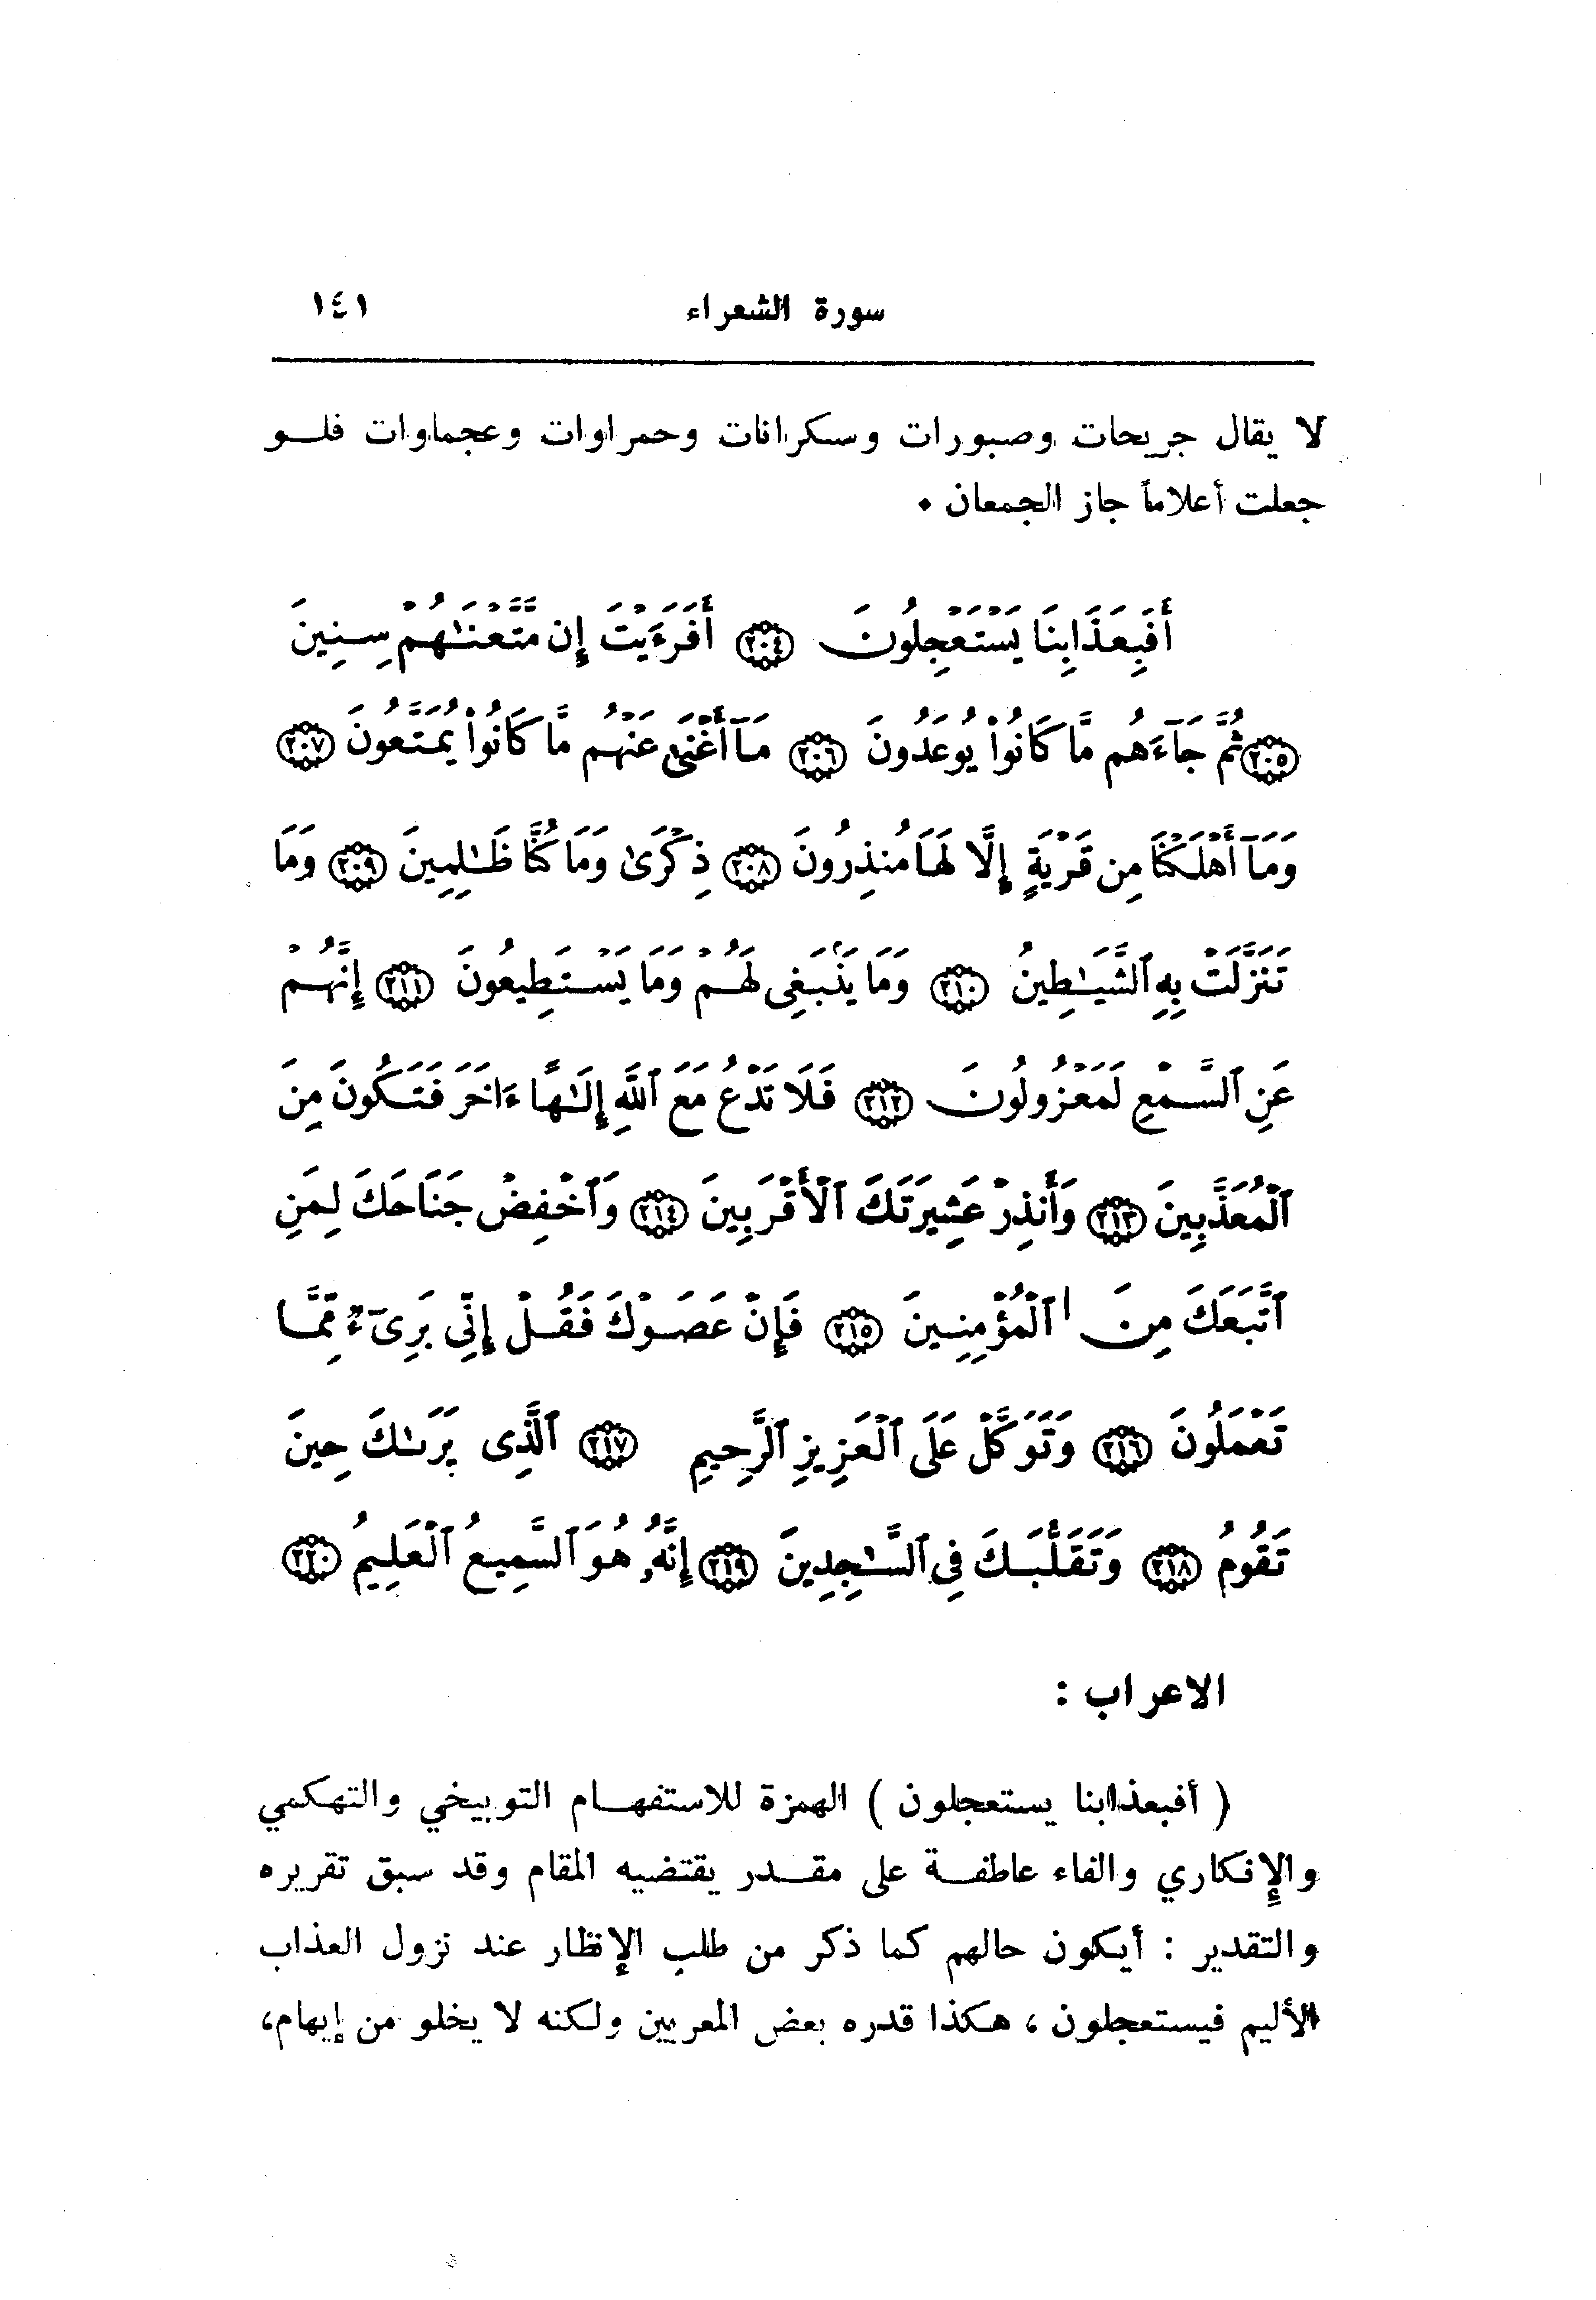 سورة الشعراء ١٤١
لا يقال جريحات وصبورات وسكرانات وحمراوات وعجماوات فلو
جعلت أعلاماً جاز الجمعان .
أَفَبِعَذَابِنَا يَسْتَعْجِلُونَ ﴿٢٠٤﴾ أَفَرَءَيْتَ إِن مَّتَّعْنَٰهُمْ سِنِينَ
﴿٢٠٥﴾ ثُمَّ جَآءَهُم مَّا كَانُوا۟ يُوعَدُونَ ﴿٢٠٦﴾ مَآ أَغْنَىٰ عَنْهُم مَّا كَانُوا۟ يُمَتَّعُونَ ﴿٢٠٧﴾
وَمَآ أَهْلَكْنَا مِن قَرْيَةٍ إِلَّا لَهَا مُنذِرُونَ ﴿٢٠٨﴾ ذِكْرَىٰ وَمَا كُنَّا ظَٰلِمِينَ ﴿٢٠٩﴾ وَمَا
تَنَزَّلَتْ بِهِ ٱلشَّيَٰطِينُ ﴿٢١٠﴾ وَمَا يَنۢبَغِى لَهُمْ وَمَا يَسْتَطِيعُونَ ﴿٢١١﴾ إِنَّهُمْ
عَنِ ٱلسَّمْعِ لَمَعْزُولُونَ ﴿٢١٢﴾ فَلَا تَدْعُ مَعَ ٱللَّهِ إِلَٰهًا ءَاخَرَ فَتَكُونَ مِنَ
ٱلْمُعَذَّبِينَ ﴿٢١٣﴾ وَأَنذِرْ عَشِيرَتَكَ ٱلْأَقْرَبِينَ ﴿٢١٤﴾ وَٱخْفِضْ جَنَاحَكَ لِمَنِ
ٱتَّبَعَكَ مِنَ ٱلْمُؤْمِنِينَ ﴿٢١٥﴾ فَإِنْ عَصَوْكَ فَقُلْ إِنِّى بَرِىٓءٌ مِّمَّا
تَعْمَلُونَ ﴿٢١٦﴾ وَتَوَكَّلْ عَلَى ٱلْعَزِيزِ ٱلرَّحِيمِ ﴿٢١٧﴾ ٱلَّذِى يَرَىٰكَ حِينَ
تَقُومُ ﴿٢١٨﴾ وَتَقَلُّبَكَ فِى ٱلسَّٰجِدِينَ ﴿٢١٩﴾ إِنَّهُۥ هُوَ ٱلسَّمِيعُ ٱلْعَلِيمُ ﴿٢٢٠﴾
الاعراب :
( أفبعذابنا يستعجلون ) الهمزة للاستفهام التوبيخي والتهكمي
والإنكاري والفاء عاطفة على مقدر يقتضيه المقام وقد سبق تقريره
والتقدير : أيكون حالهم كما ذكر من طلب الإنظار عند نزول العذاب
الأليم فيستعجلون ، هكذا قدره بعض المعربين ولكنه لا يخلو من إيهام،